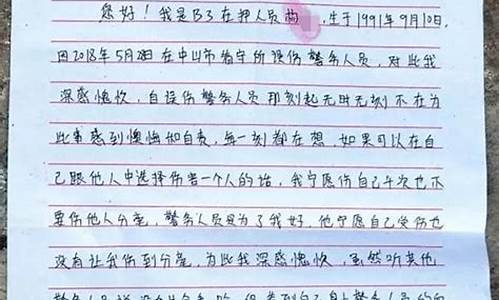 您好！我是B3在押人员尚 ，生于1991年9月10日.
因2018年5月28日在中山市看守所误伤警务人员，对此我
深感愧疚，自误伤警务人员那刻起无时无刻不在为
此事感到懊悔和自责，每一刻都在想，如果可以在自
己跟他人中选择伤害一个人的话，我宁愿伤自己千次也不
要伤他人分毫，警务人员是为了我好，他宁愿自己受伤也
没有让我伤到分毫，为此我深感愧疚，虽然听其他
警务人员说没有什么 ，但 到自己 警务人员的